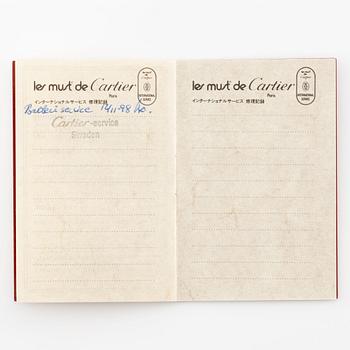 les must de Cartier
Paris
INTERNATIONAL
SERVICE
インターナショナルサービス 修理記録
Batteri service 12/11-98
Cartier-service
Sweden
les must de Cartier
Paris
INTERNATIONAL
SERVICE
インターナショナルサービス 修理記録